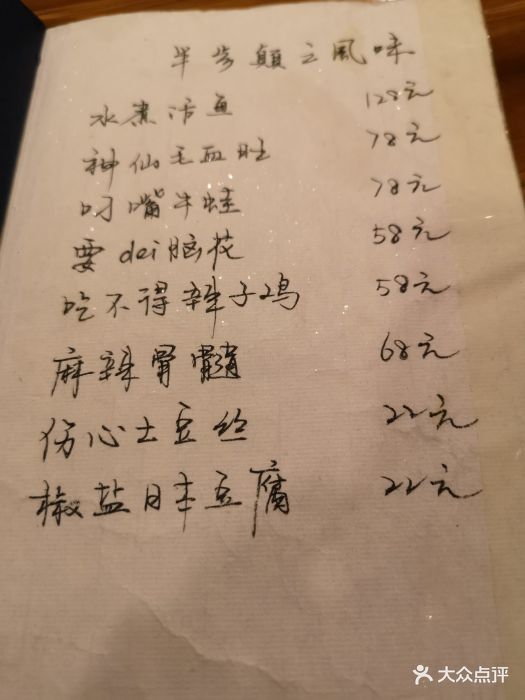 半步顛之風味
水煮活鱼 128元
神仙毛血旺 78元
叼嘴牛蛙 78元
要dei脑花 58元
吃不得辣子鸡 58元
麻辣骨髓 68元
伤心土豆丝 22元
椒盐日本豆腐 22元
大众点评